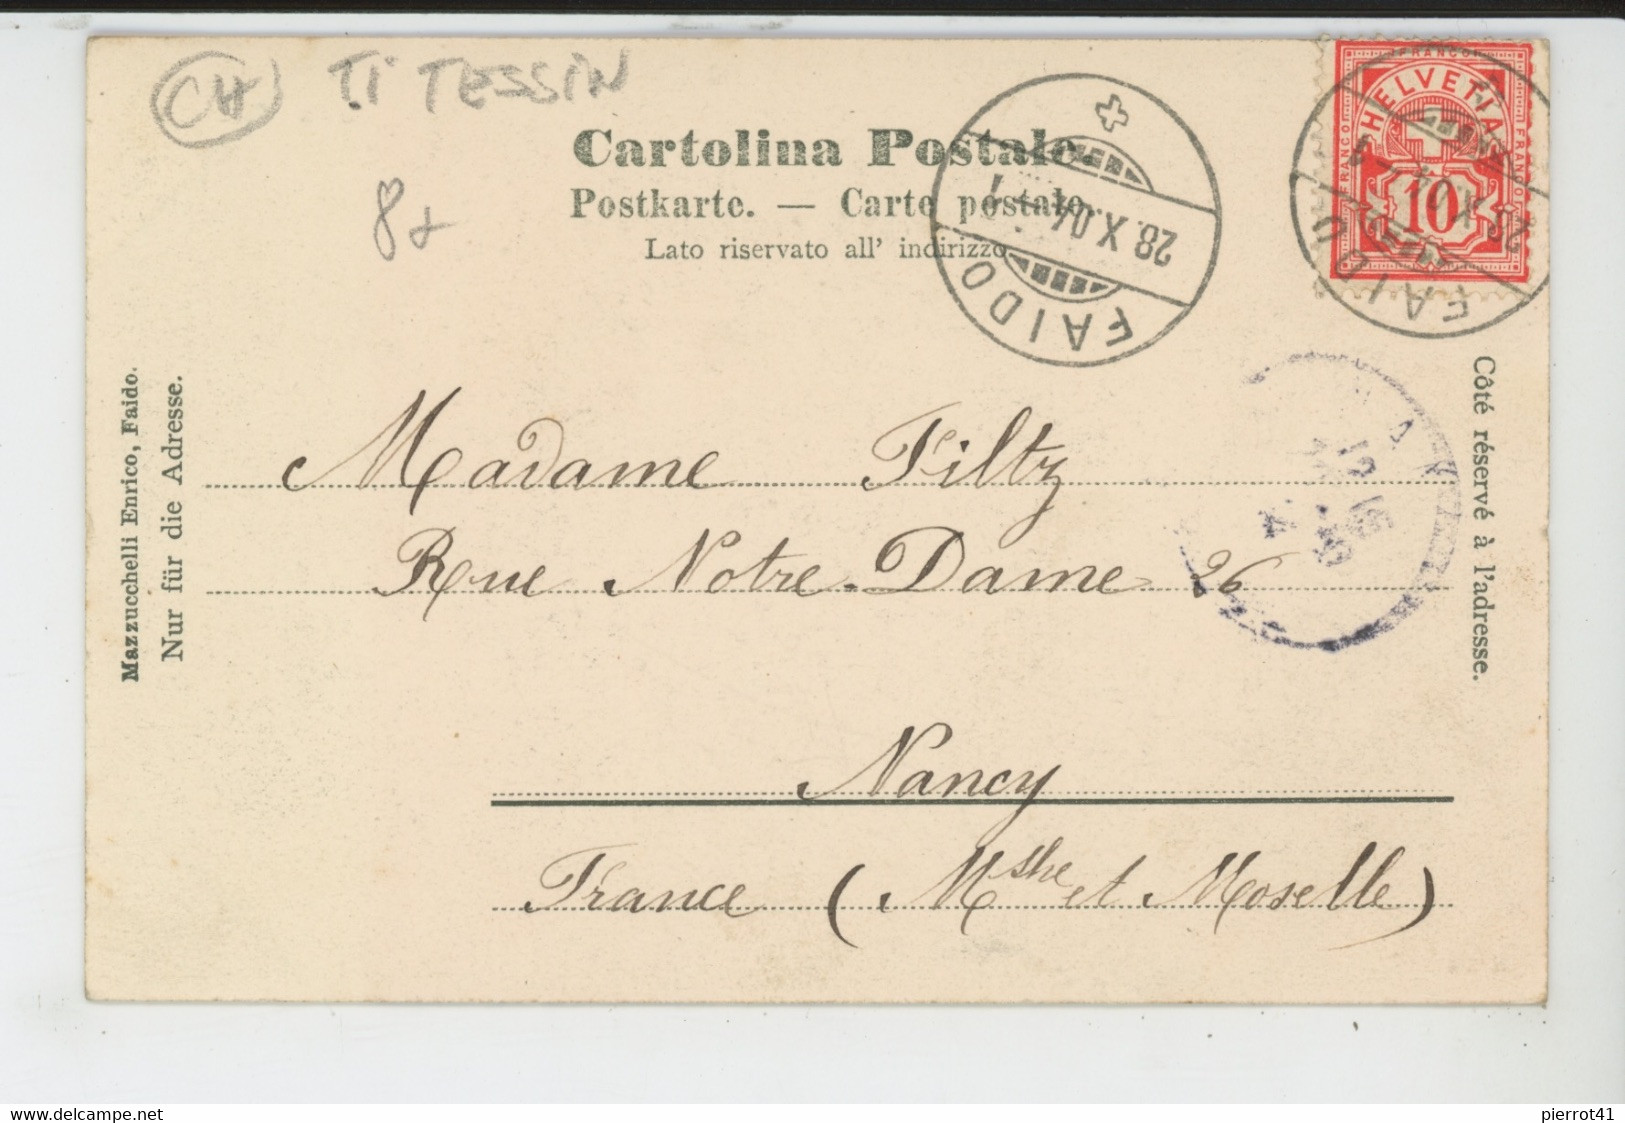 CH TI TESSIN
8+
Cartolina Postale.
Postkarte. — Carte postale.
Lato riservato all' indirizzo
FAIDO
28.X.04
FRANCO
HELVETIA
FRANCO
FRANCO
10
FAIDO
Mazzucchelli Enrico, Faido.
Nur für die Adresse.
Côté réservé à l'adresse.
Madame Filtz
Rue Notre-Dame 26
Nancy
France (Mthe et Moselle)
delcampe.net
pierrot41